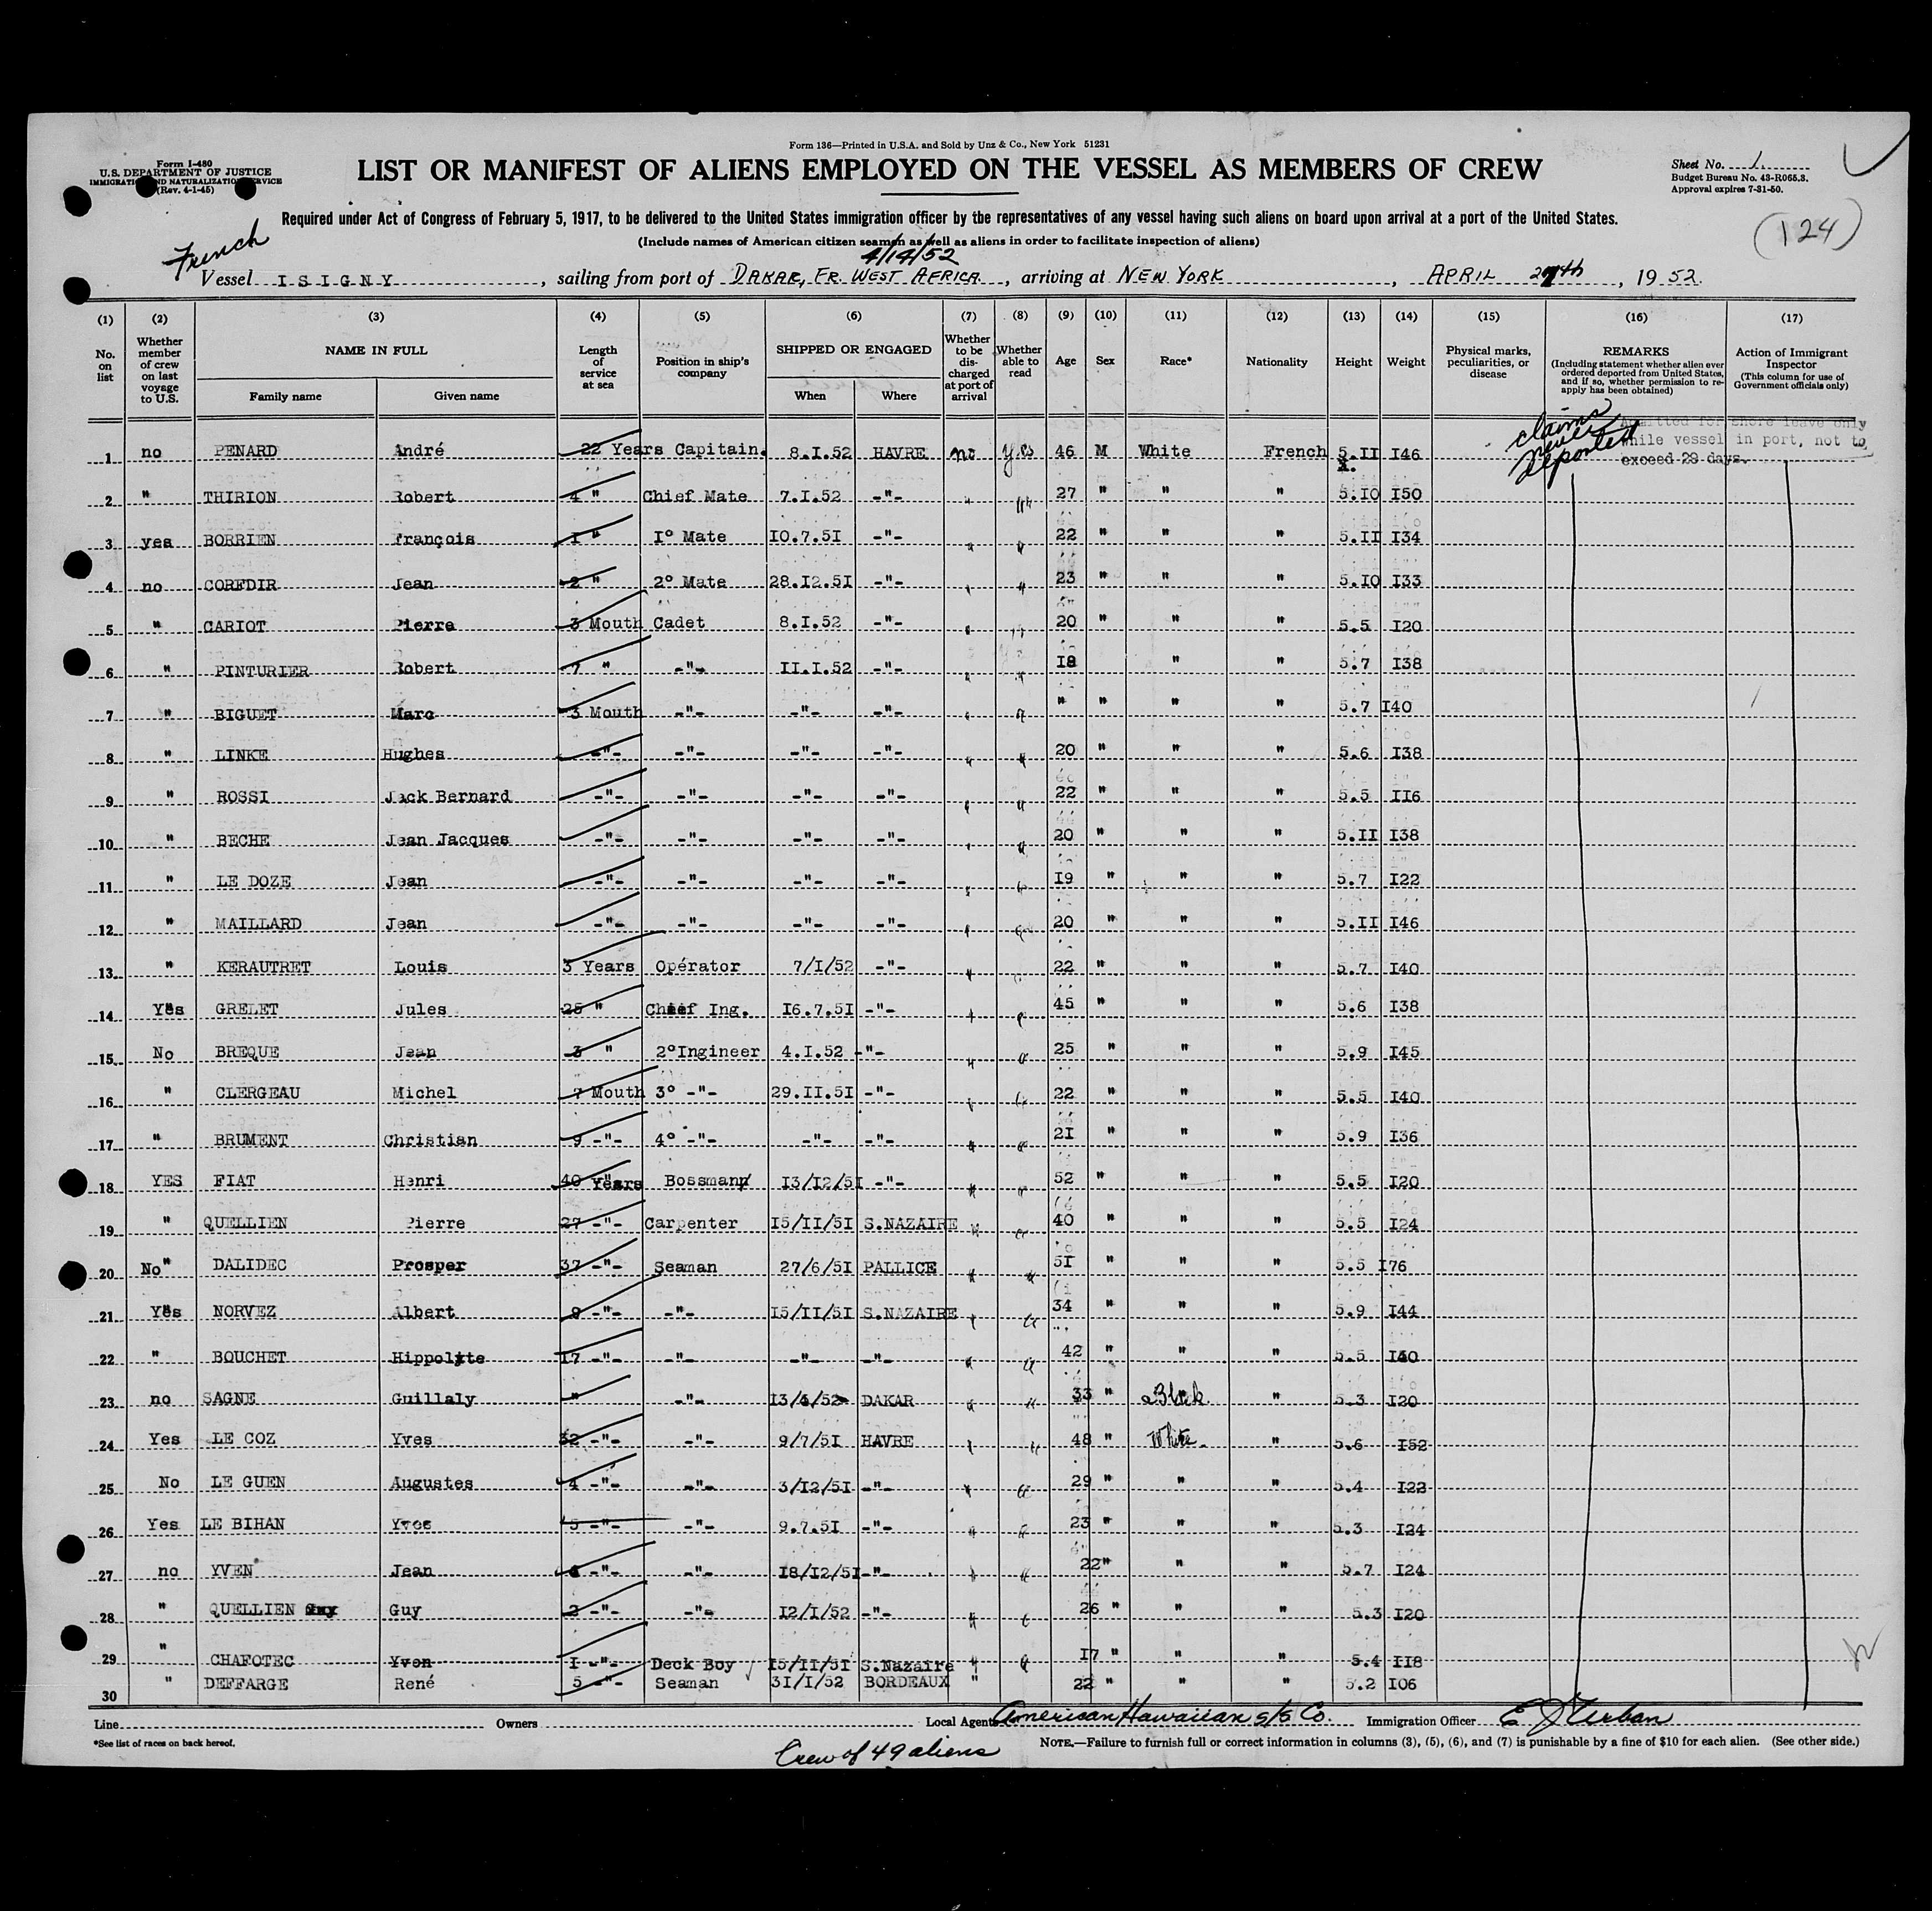 Form 136—Printed in U.S.A. and Sold by Unz & Co., New York 51231
Form I-480
U.S. DEPARTMENT OF JUSTICE
IMMIGRATION AND NATURALIZATION SERVICE
(Rev. 4-1-45)
LIST OR MANIFEST OF ALIENS EMPLOYED ON THE VESSEL AS MEMBERS OF CREW
Sheet No. 1
Budget Bureau No. 43-R065.3.
Approval expires 7-31-50.
Required under Act of Congress of February 5, 1917, to be delivered to the United States immigration officer by the representatives of any vessel having such aliens on board upon arrival at a port of the United States.
(Include names of American citizen seamen as well as aliens in order to facilitate inspection of aliens)
(124)
French
4/14/52
Vessel ISIGNY, sailing from port of DAKAR, FR. WEST AFRICA, arriving at NEW YORK, APRIL 27th, 1952.
(1) (2) (3) (4) (5) (6) (7) (8) (9) (10) (11) (12) (13) (14) (15) (16) (17)
No. on list
Whether member of crew on last voyage to U.S.
NAME IN FULL
Family name Given name
Length of service at sea
Position in ship's company
SHIPPED OR ENGAGED
When Where
Whether to be discharged at port of arrival
Whether able to read
Age
Sex
Race*
Nationality
Height
Weight
Physical marks, peculiarities, or disease
REMARKS
(Including statement whether alien ever ordered deported from United States, and if so, whether permission to reapply has been obtained)
Action of Immigrant Inspector
(This column for use of Government officials only)
claims never deported
Admitted for shore leave only
while vessel in port, not to
exceed 29 days.
1 no PENARD André 22 Years Capitain. 8.I.52 HAVRE no yes 46 M White French 5.II I46
2 " THIRION Robert 4 " Chief Mate 7.I.52 -"- " " 27 " " " 5.IO I50
3 yes BORRIEN françois I " I° Mate IO.7.5I -"- " " 22 " " " 5.II I34
4 no COREDIR Jean 2 " 2° Mate 28.I2.5I -"- " " 23 " " " 5.IO I33
5 " CARIOT Pierre 3 Mouth Cadet 8.I.52 -"- " " 20 " " " 5.5 I20
6 " PINTURIER Robert 7 " -"- II.I.52 -"- " " I8 " " 5.7 I38
7 " BIGUET Marc 3 Mouth -"- -"- -"- " " " " " " 5.7 I40
8 " LINKE Hughes -"- -"- -"- -"- " " 20 " " " 5.6 I38
9 " ROSSI Jack Bernard -"- -"- -"- -"- " " 22 " " " 5.5 II6
10 " BECHE Jean Jacques -"- -"- -"- -"- " " 20 " " " 5.II I38
11 " LE DOZE Jean -"- -"- -"- -"- " " I9 " " " 5.7 I22
12 " MAILLARD Jean -"- -"- -"- -"- " " 20 " " " 5.II I46
13 " KERAUTRET Louis 3 Years Opérator 7/I/52 -"- " " 22 " " " 5.7 I40
14 Yes GRELET Jules 25 " Chief Ing. I6.7.5I -"- " " 45 " " " 5.6 I38
15 No BREQUE Jean 3 " 2°Ingineer 4.I.52 -"- " " 25 " " " 5.9 I45
16 " CLERGEAU Michel 7 Mouth 3° -"- 29.II.5I -"- " " 22 " " " 5.5 I40
17 " BRUMENT Christian 9 -"- 4° -"- -"- -"- " " 2I " " " 5.9 I36
18 YES FIAT Henri 40 Years Bossman I3/I2/5I -"- " " 52 " " " 5.5 I20
19 " QUELLIEN Pierre 27 -"- Carpenter I5/II/5I S.NAZAIRE " " 40 " " " 5.5 I24
20 No DALIDEC Prosper 37 -"- Seaman 27/6/5I PALLICE " " 5I " " " 5.5 I76
21 Yes NORVEZ Albert 9 -"- -"- I5/II/5I S.NAZAIRE " " 34 " " " 5.9 I44
22 " BOUCHET Hippolyte I7 -"- -"- -"- -"- " " 42 " " " 5.5
23 no SAGNE Guillaly " -"- I3/4/52 DAKAR " " 33 " Black " 5.3 I20
24 Yes LE COZ Yves 32 -"- -"- 9/7/5I HAVRE " " 48 " White " 5.6 I52
25 No LE GUEN Augustes 4 -"- -"- 3/I2/5I -"- " " 29 " " " 5.4 I22
26 Yes LE BIHAN Yves 5 -"- -"- 9.7.5I -"- " " 23 " " " 5.3 I24
27 no YVEN Jean -"- -"- I8/I2/5I -"- " " 22 " " " 5.7 I24
28 " QUELLIEN Guy 2 -"- -"- I2/I/52 -"- " " 26 " " " 5.3 I20
29 " CHAFOTEC Yvon I -"- Deck Boy I5/II/5I S.Nazaire " " I7 " " " 5.4 II8
30 " DEFFARGE René 5 -"- Seaman 3I/I/52 BORDEAUX " 22 " " " 5.2 I06
Line Owners Local Agents American Hawaiian S/S Co. Immigration Officer E J Urban
*See list of races on back hereof.
Crew of 49 aliens
NOTE.—Failure to furnish full or correct information in columns (3), (5), (6), and (7) is punishable by a fine of $10 for each alien. (See other side.)